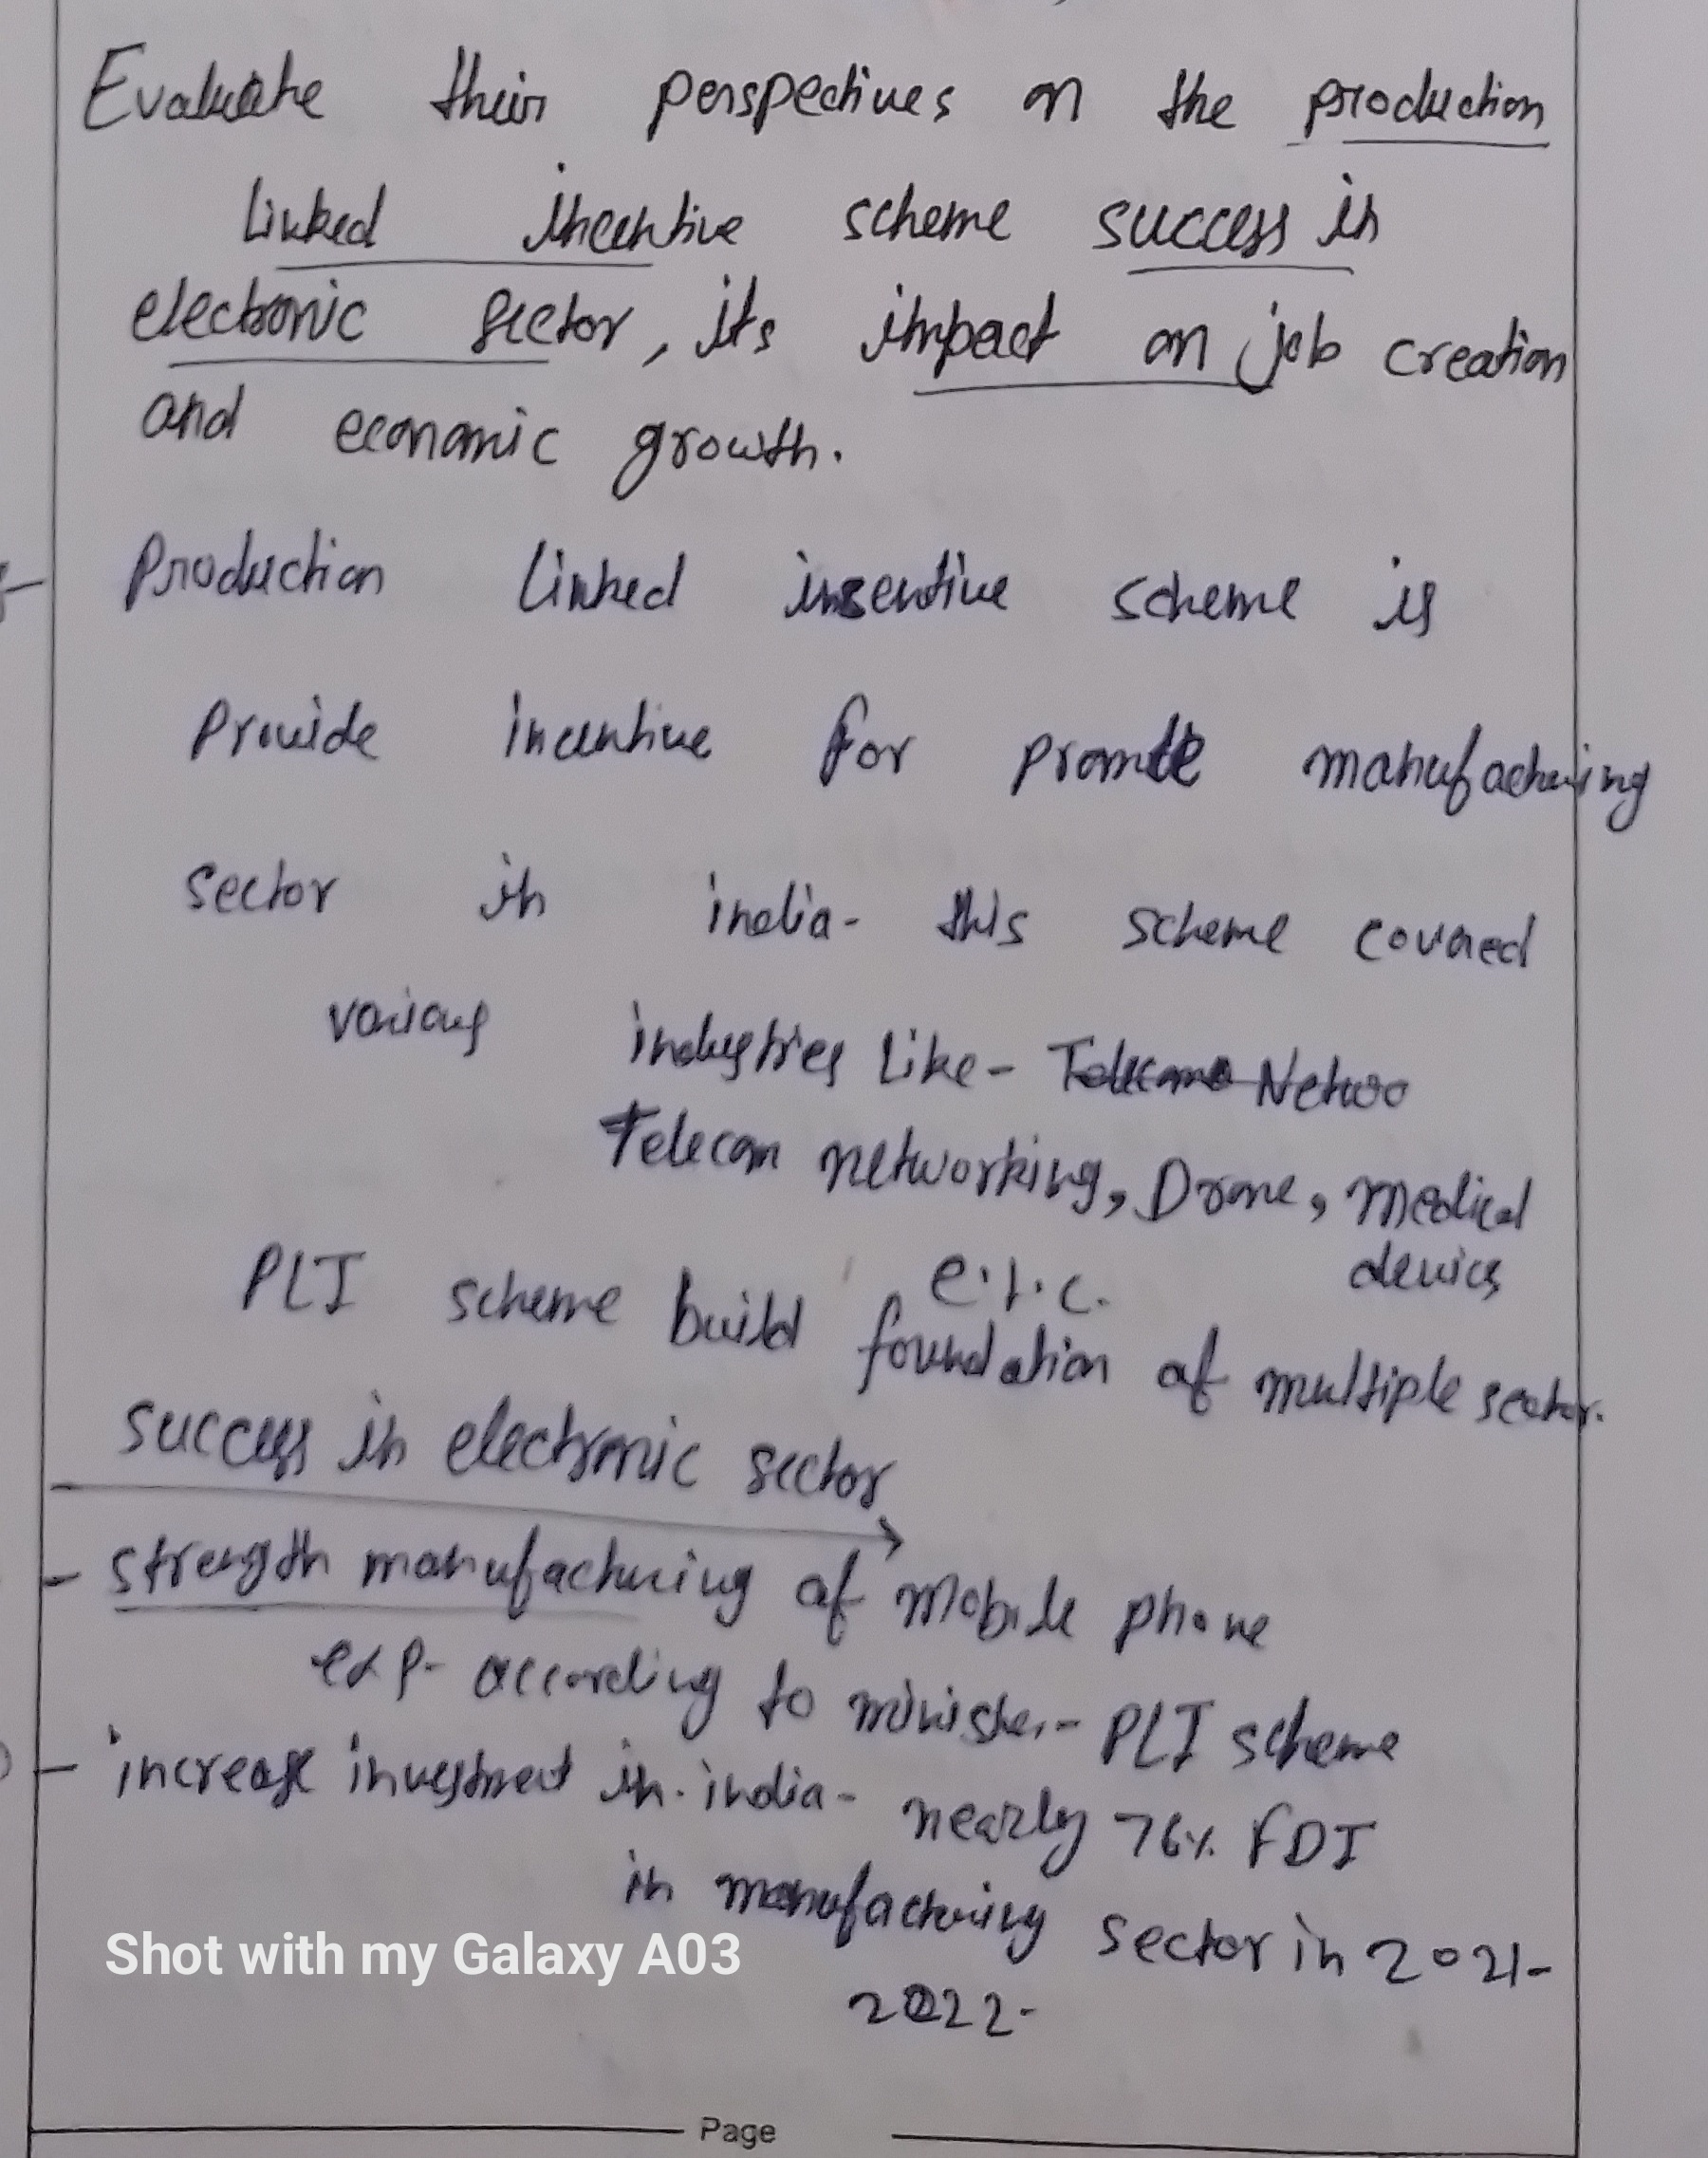 Evaluate their perspectives on the production
Linked incentive scheme success in
electronic sector, its impact on job creation
and economic growth.
Production Linked insentive scheme is
Provide incentive for promote manufacturing
sector in india- this scheme covered
various industries like- Telecome Netwo
Telecom networking, Drone, medical
devices
e.t.c.
PLI scheme build foundation of multiple sector.
success in electronic sector
- strength manufacturing of mobile phone
exp- according to minister- PLI scheme
- increase investment in india- nearly 76% FDI
in manufacturing sector in 2021-
2022-
Shot with my Galaxy A03
Page